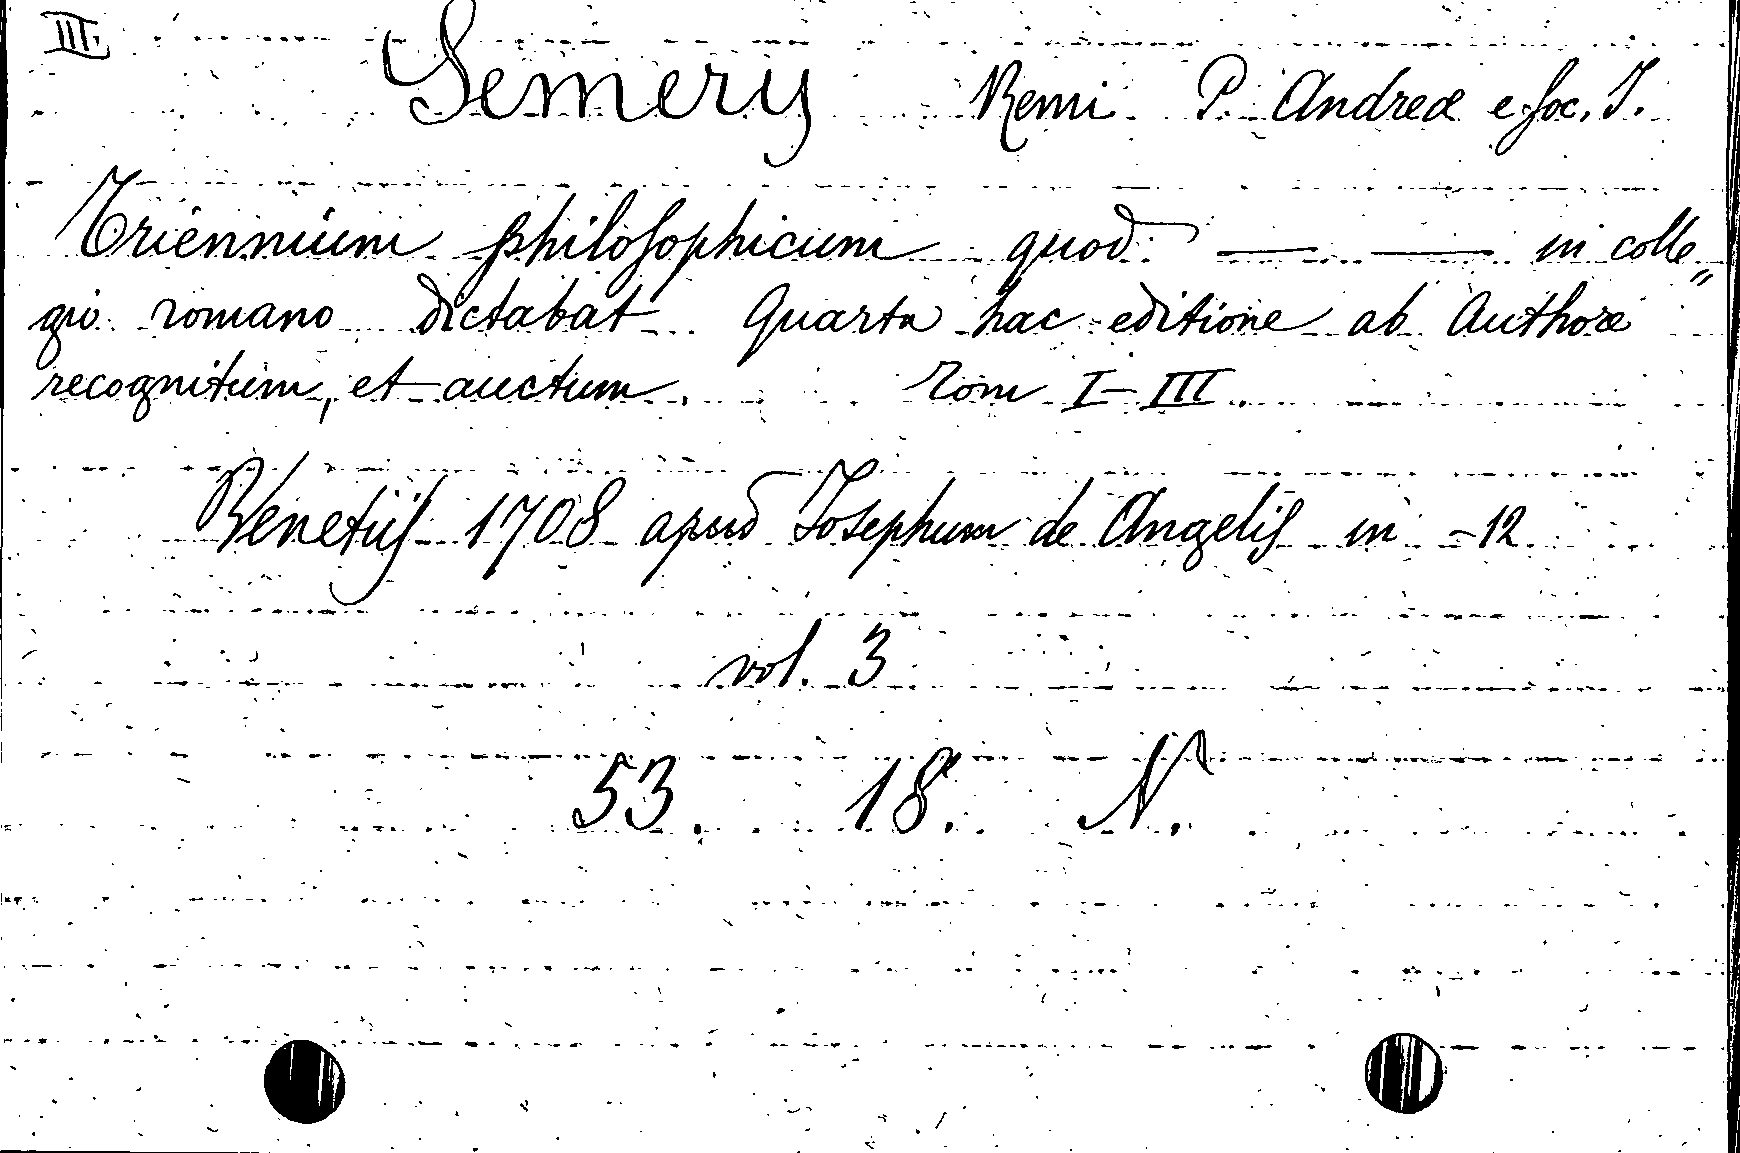 III.
Semery Remi P. Andreæ e Soc. J.
Triennium philosophicum quod — — in colle„
gio romano dictabat. Quarta hac editione ab Authore
recognitum, et auctum. Tom I-III.
Venetiis 1708 apud Josephum de Angelis in -12
vol. 3
53. 18. N.